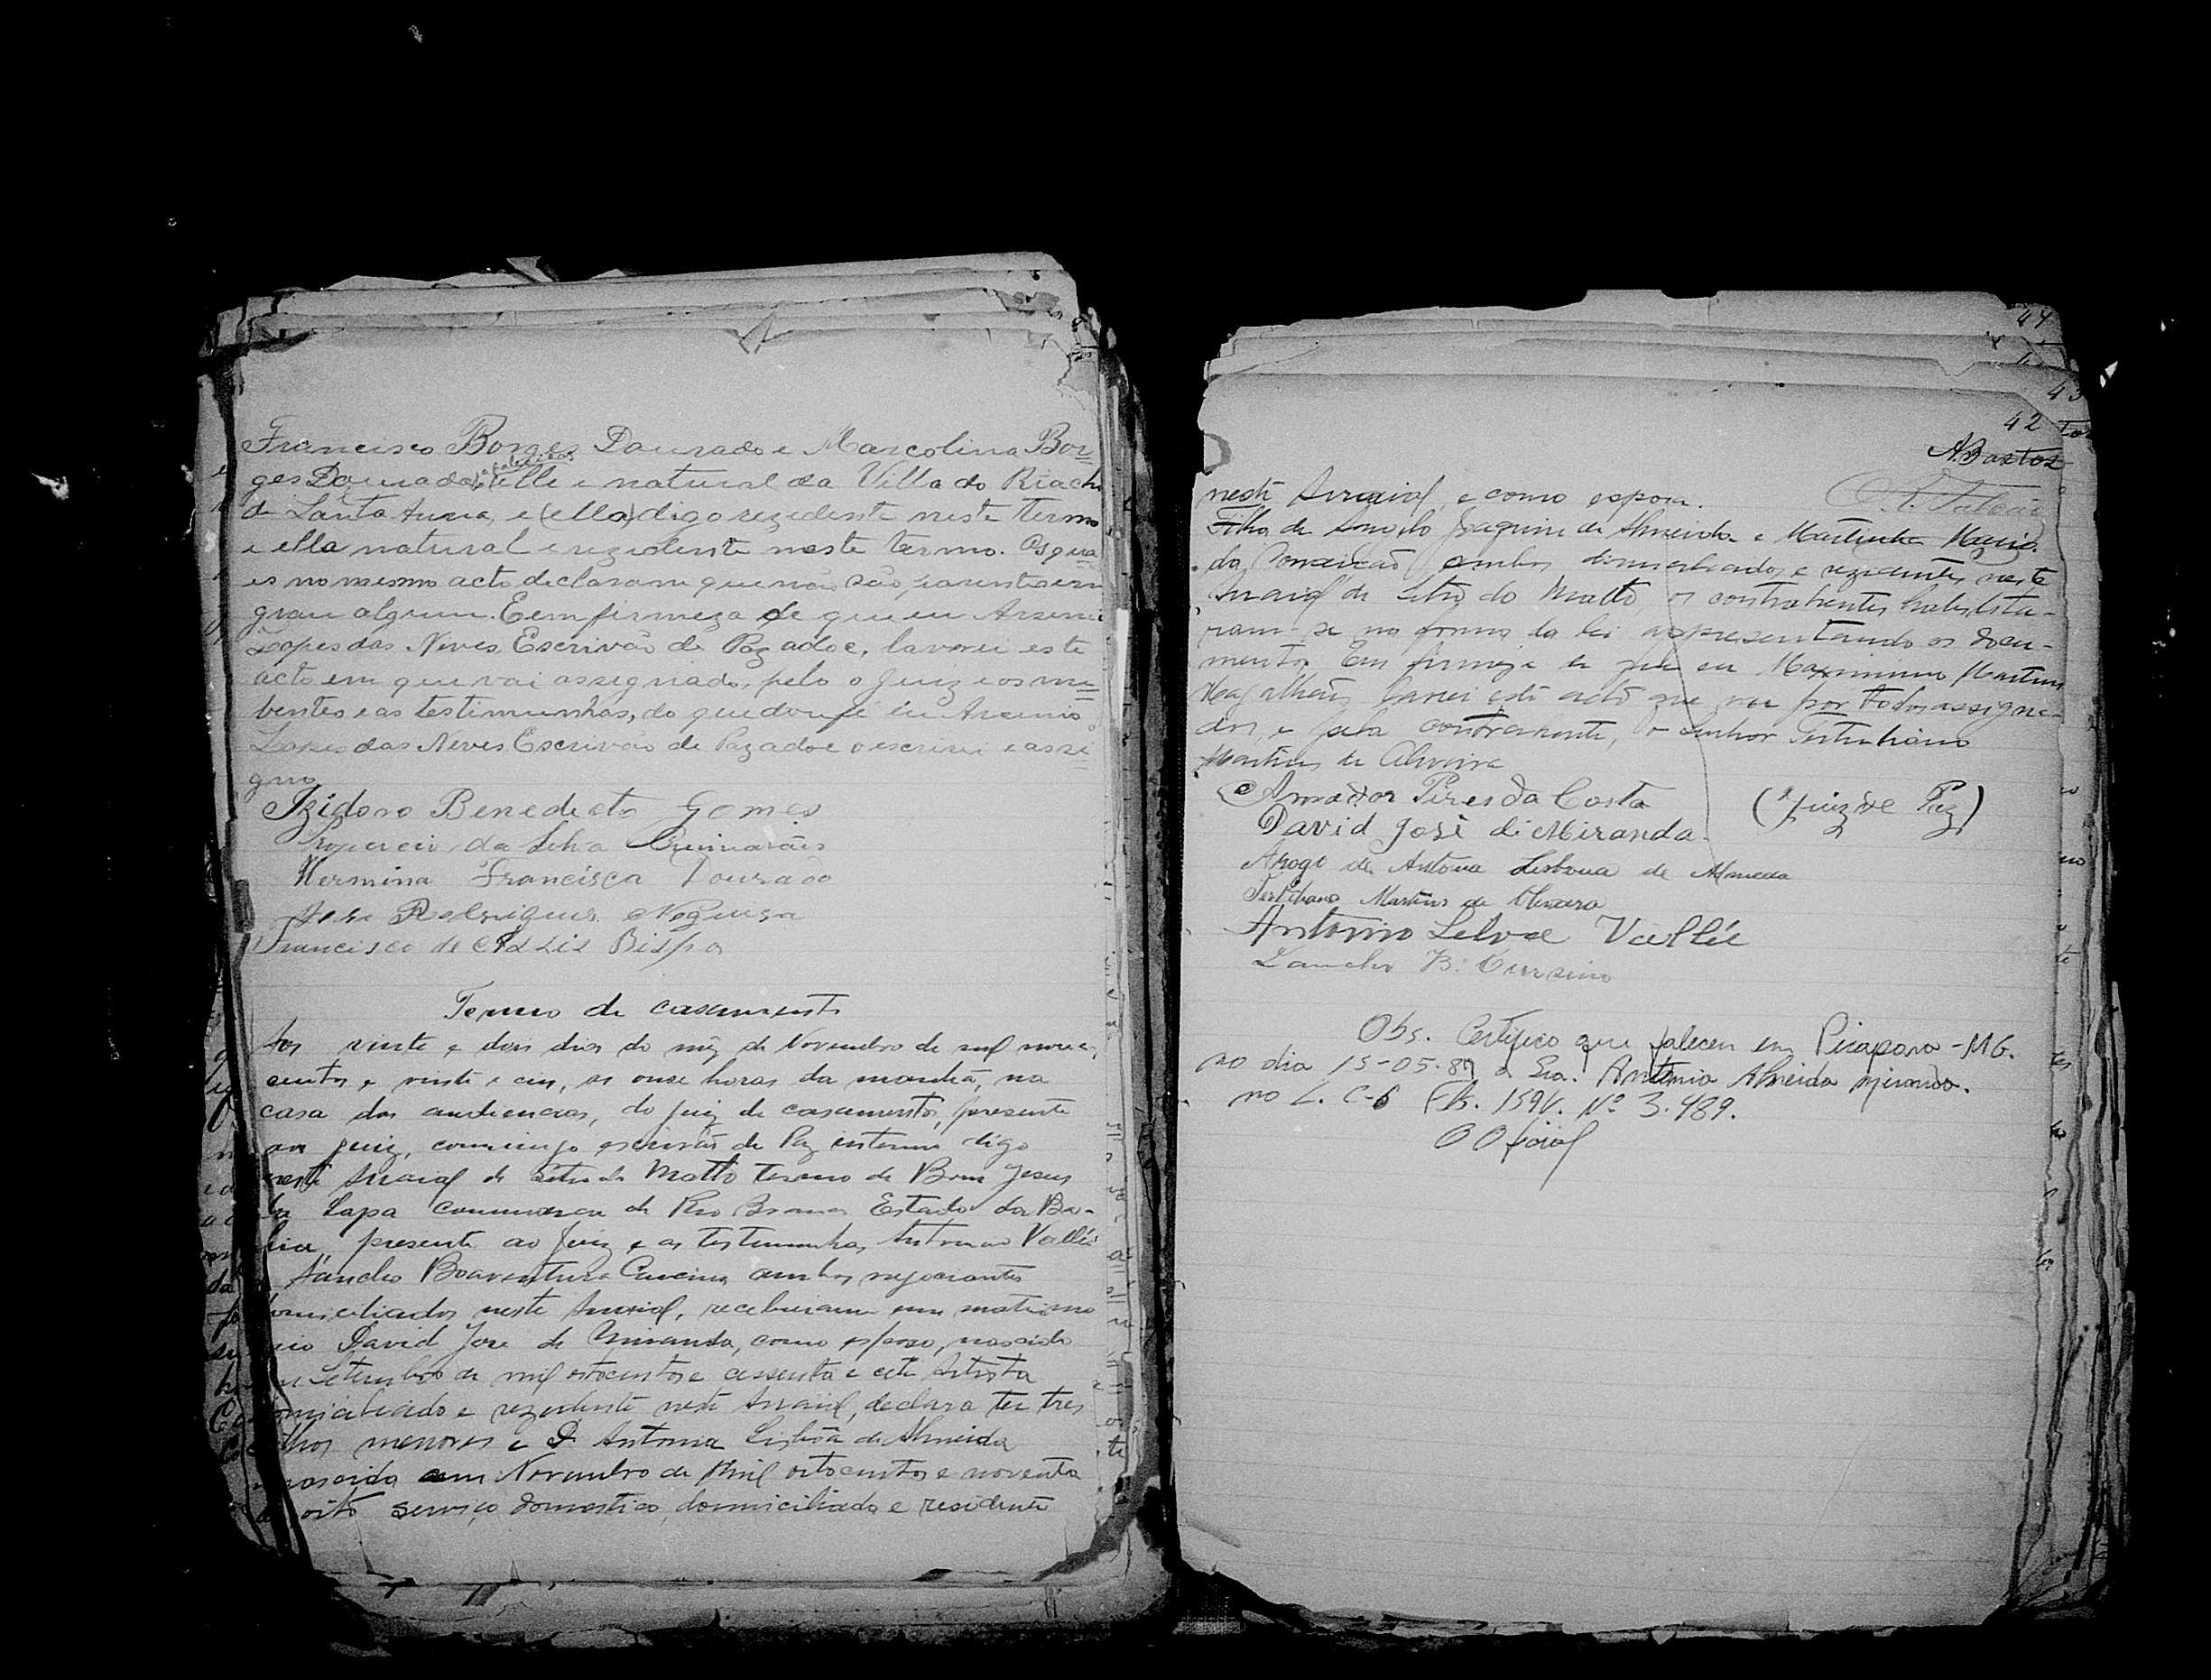 Francisco Borges Dourado e Marcolina Bor=
ges Dourada, ja falecidos, elle e natural da Villa do Riacho
de Santa Anna, e (ella) digo rezidente neste termo
e ella natural e rezidente neste termo. Os qua
es no mesmo acto declararam que não são parentes em
grau algum. E em firmeza de que eu Arsenio
Lopes das Neves Escrivão de Paz adoc, lavrei este
acto em que vai assignado, pelo o Juiz e os nu=
bentes e as testimunhas, do que dou fé eu Arsenio
Lopes das Neves Escrivão de Paz adoc o escrivi e assi=
gno
Izidoro Benedicto Gomes
da Silva Guimarães
Hermina Francisca Dourado
Rodrigues
Francisco de Assis Bispo
Termo de casamento
Aos vinte e dois dias do mez de Novembro de mil nove
centos e vinte e cin, as onze horas da manhã, na
casa das audiencias, do juiz de casamentos, presente
ao juiz, commigo escrivão de Paz interino digo
neste Arraial de Sitio do Matto termo de Bom Jesus
da Lapa commarca de Rio Branco Estado da Ba-
hia, presente ao Juiz e as testemunhas Antonio Vallée
Sancho Boaventura ambos negociantes
domiciliados neste Arraial, receberam em matrimo
nio David Jose de Miranda, como esposo, nascido
em Setembro de mil oitocentos e cessenta e cete
domiciliado e rezidente neste Arraial, declara ter tres
filhos menores e D. Antonia Lisbôa de Almeida
nascida em Novembro de Mil oitocentos e noventa
e oitô serviço domestico, domiciliada e residente
44
43
42
A Bastos
neste Arraial, e como espoza.
Filha de Joaquim de Almeida e Martinha Maria
da Conceicão ambos domiciliados e rezidentes neste
Arraial de Sitio do Matto, os contrahentes habilita-
ram-se na forma da lei apresentando os docu-
mentos Em firmeza de que eu Maximino Martins
Magalhães lavrei este actô que vai por todos assigna-
dos, e pela contrahente, o senhor Tertuliano
Martins de Oliveira
Amador Pires da Costa (1º Juiz de Paz)
David José de Miranda.
Arogo de Antonia Lisboua de Almeida
Tertuliano Martins de Oliveira
Antonio Vallée
Sancho B.
Obs. Certifico que faleceu em Pirapora - MG.
no dia 15-05-87 a Sra. Antônia Almeida Miranda.
no L. C-6 Fls. 159V. Nº 3.489.
O Oficial